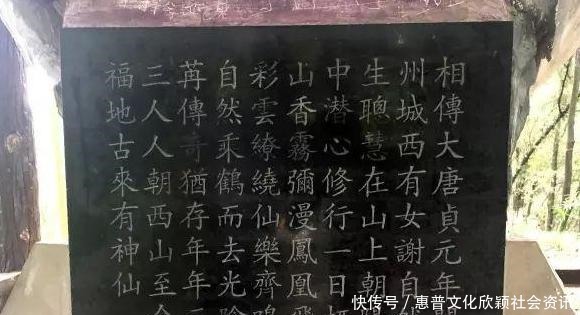 相傳大唐貞元年間
州城西有女謝自然
生聰慧在山上朝
中潜心修行一日
山香霧彌漫鳳凰飛
彩雲繚繞仙樂齊鳴
自然乘鶴而去光陰
苒傳奇猶存年年
三人人朝西山至今
福地古來有神仙
快传号/惠普文化欣颖社会资讯